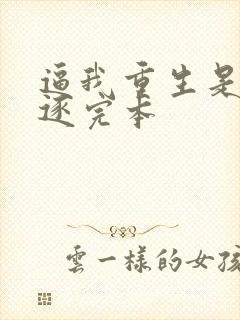 逼我重生是
逐完本
雲一樣的女孩